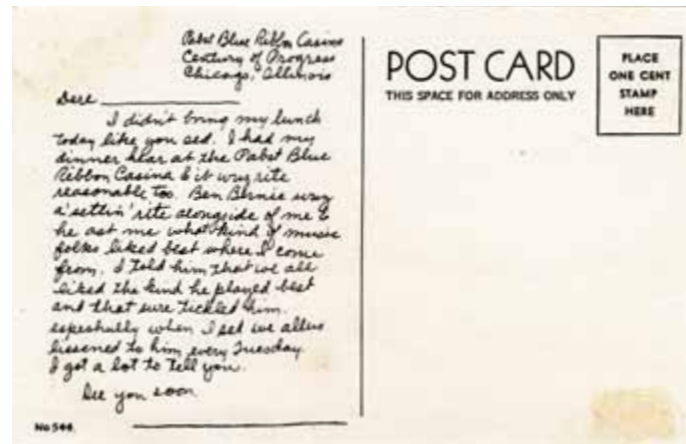 Pabst Blue Ribbon Casino
Century of Progress
Chicago, Illinois
Dere
I didn't bring my lunch
today like you sed. I had my
dinner hear at the Pabst Blue
Ribbon Casino & it wuz rite
reasonable too. Ben Bernie wuz
a'settin' rite alongside of me &
he ast me what kind of music
folks liked best where I come
from. I told him that we all
liked the kind he played best
and that sure tickled him.
espeshully when I sed we allus
lissened to him every Tuesday.
I got a lot to tell you.
See you soon
No 544.
POST CARD
THIS SPACE FOR ADDRESS ONLY
PLACE
ONE CENT
STAMP
HERE